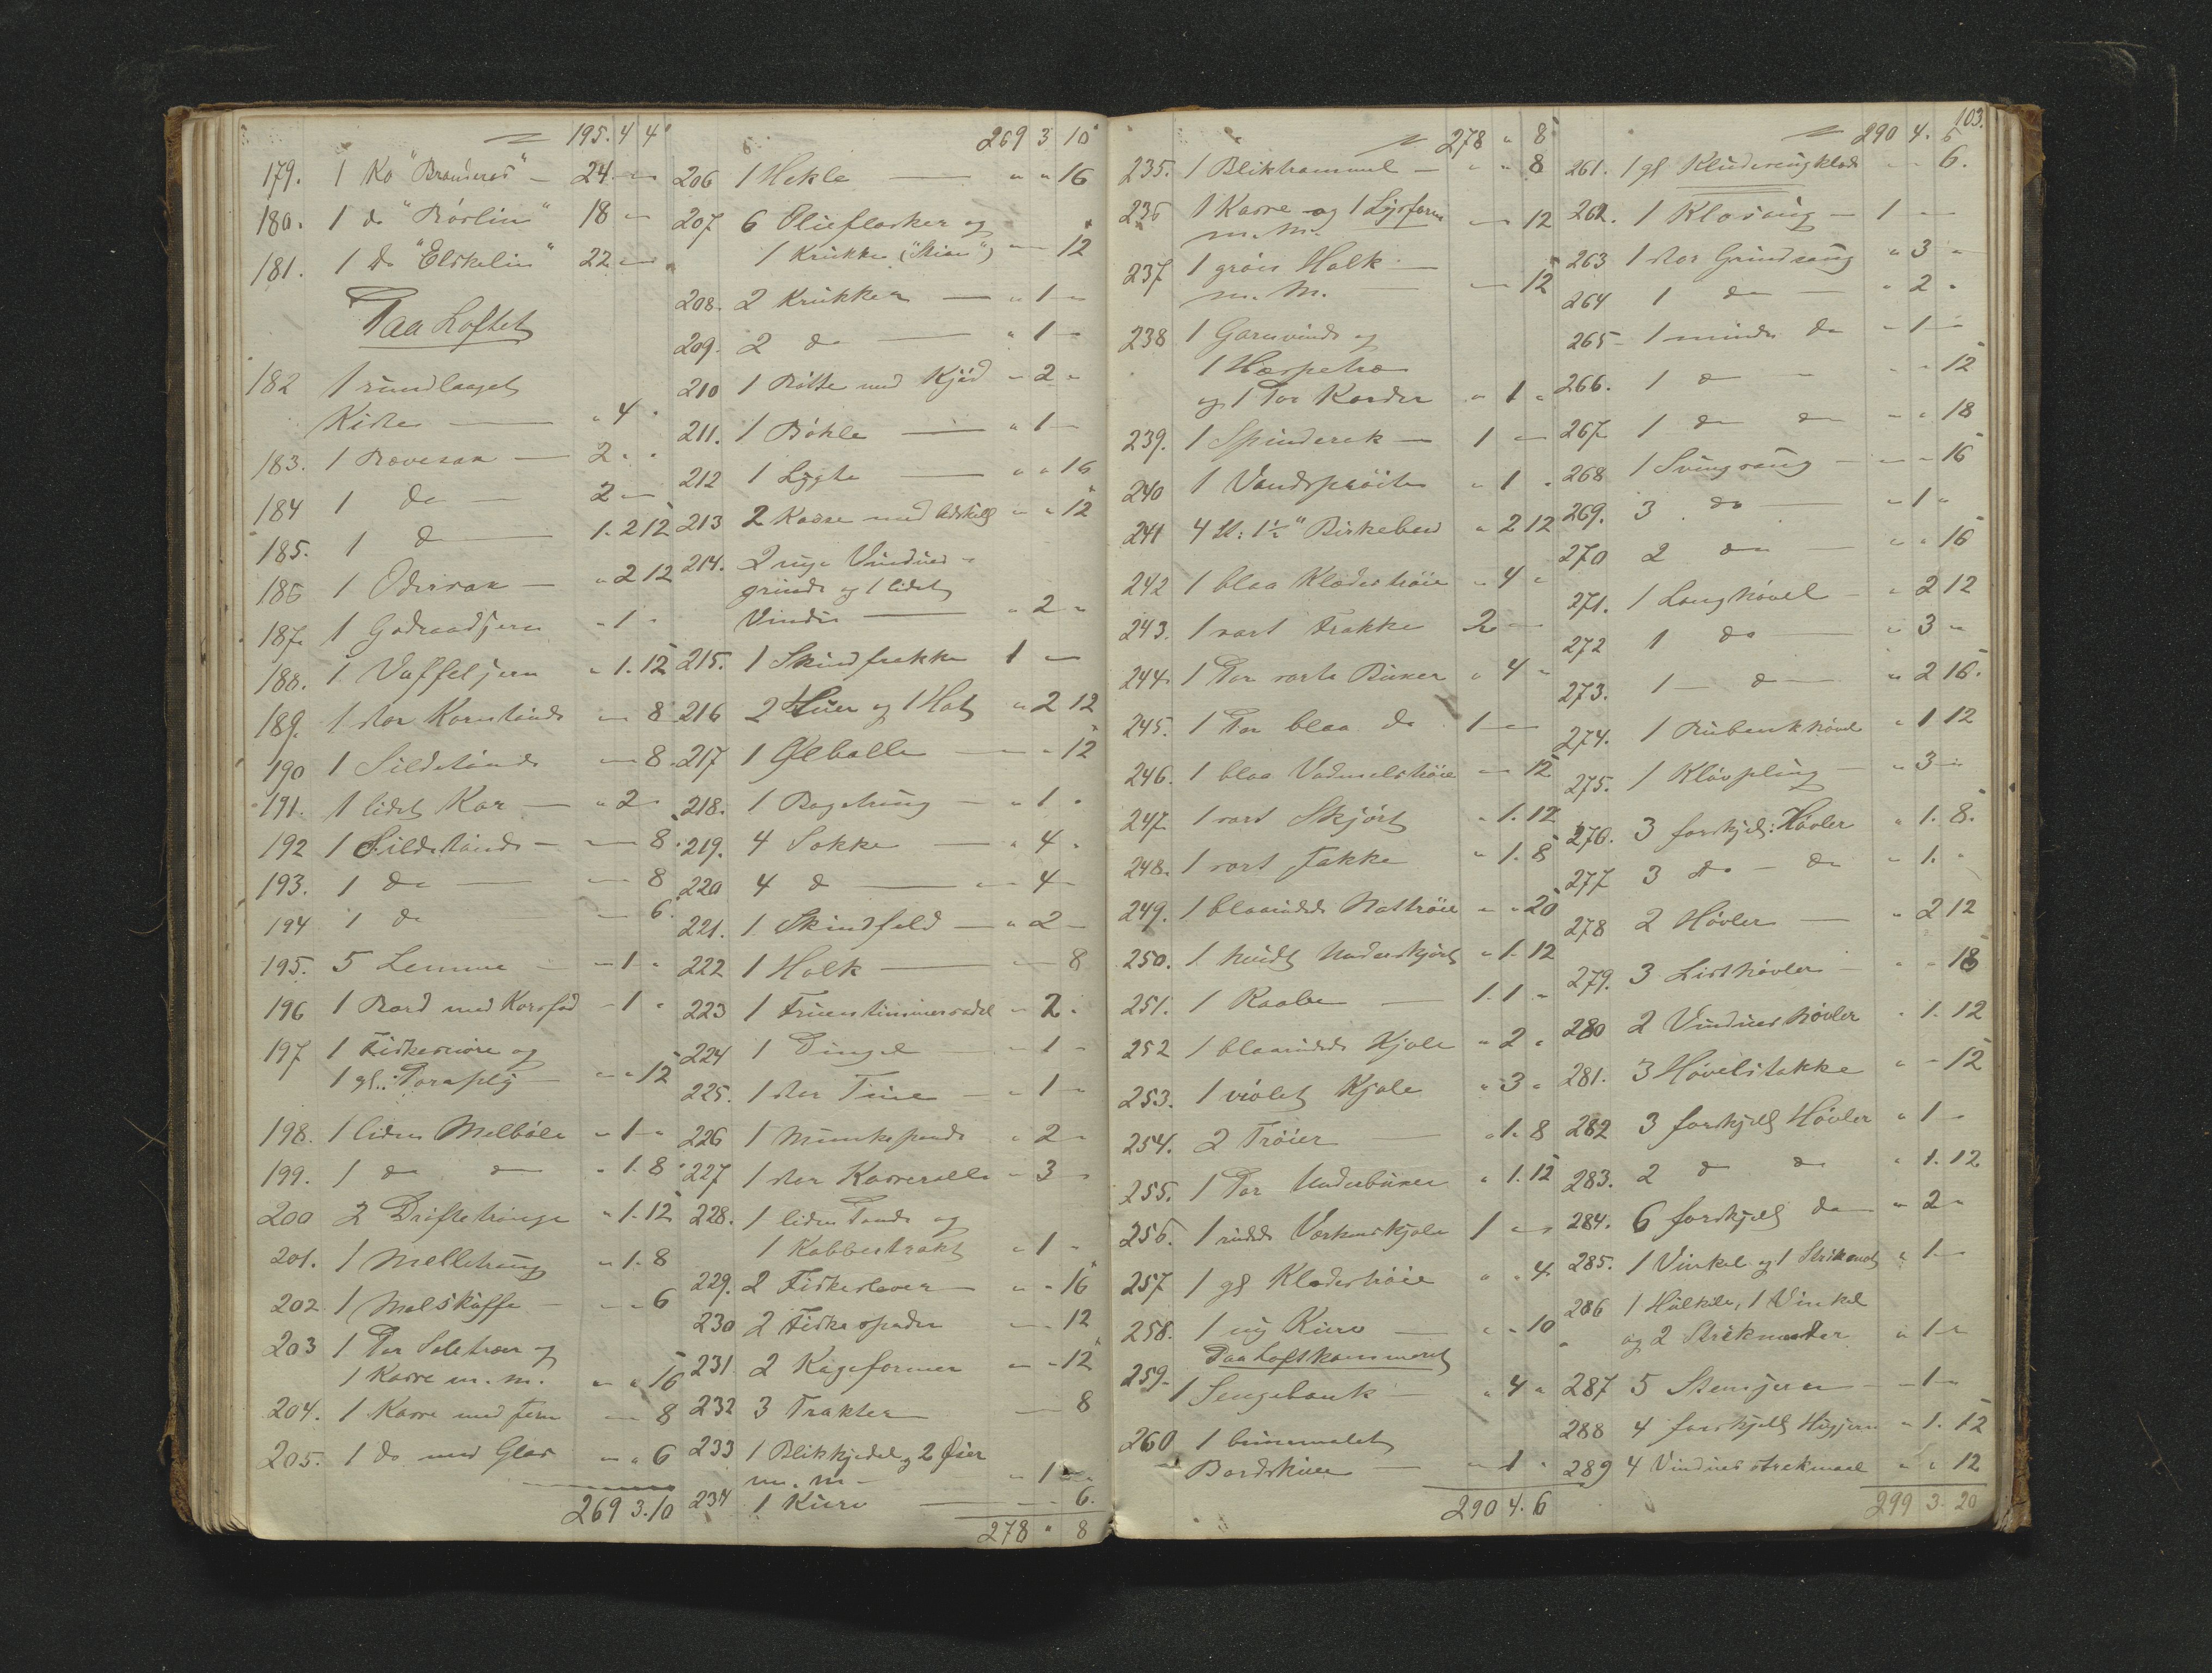 195. 4 4
179. 1 Ko "Branderos" — 24 - -
180. 1 do "Röslin" 18 - -
181. 1 do "Elskelin" 22 - -
Paa Loftet
182 1 rundlaaget
Kiste — " 4 "
183. 1 Rævesax — 2 " "
184 1 do — 2 - -
185. 1 do — 1. 2 12
186 1 Odersax — " 2 12
187. 1 Godraadjern " 1 "
188. 1 Vaffeljern " 1. 12
189. 1 stor Korntönde - - 8
190 1 Sildetönde - - 8
191. 1 lidet Kar — " 2 "
192 1 Sildetönde - - - 8
193. 1 do — - - 8
194 1 do - - 6
195. 5 Lemme — - 1 "
196 1 Bord med Korsfod - 1 "
197 1 Fiskesnöre og
1 gl.: Toraplög — " " 12
198. 1 liden Melböle - 1 "
199. 1 do do " 1. 8
200 2 Dröftetrouge " 1. 12
201. 1 Melletroug " 1. 8
202 1 Malskuffe — - " 6
203 1 Par Seletræer og
1 Kasse m. m. " " 16
204. 1 Kasse med Jern - - 8
205. 1 do med Glas " " 6
269 3. 10
269 3 10
206 1 Hekle — " " 16
207 6 Olieflasker og
1 Krukke ("Stian") - - 12
208. 2 Krukker — " 1 -
209. 2 do — " 1 -
210 1 Bötte med Kjöd - 2 "
211. 1 Bökle — " 1 -
212 1 Lygte — " " 16
213 2 Kasse med adskill - " 12
214. 2 nye Vindues-
grinde og 1 lidet
Vindu — " 2 "
215. 1 Skindfrakke 1 - -
216 2 Huer og 1 Hat " 2 12
217 1 Ølballe — - " 12
218. 1 Bagetroug — " 1 "
219. 4 Sække — " 4 "
220 4 do — - 4 -
221. 1 Skindfeld — " 2 -
222 1 Holk — - - 8
223 1 Fruentimmersadel - 2 "
224 1 Dingel — - 1 -
225. 1 stor Tine — " 1 -
226 1 Munkepande " 2 -
227 1 stor Kasserolle - 3 -
228. 1 liden Pande og
1 Kobbertrakt " 1 -
229. 2 Fiskesleever — " " 16
230 2 Fiskespader - - 12
231. 2 Kageformer " - 12
232 3 Trakter — 8
233 1 Blikkjedel og 2 Øser
m. m — " 1 "
234 1 Kurv — - - 6.
278 " 8
278 " 8
235. 1 Bliktrommel — " " 8
236 1 Kasse og 1 Lysform
m. m. - - 12
237 1 grön Holk —
m. m. — - - 12
238 1 Garnvinde og
1 Hæspetræ
og 1 Par Karder " 1 "
239. 1 Spinderok — 1 - -
240 1 Vandspröite " 1 "
241 4 St: 1½" Birkebord " 2 12
242 1 blaa Klædeströie " 4 "
243. 1 sort Frakke 2 - -
244. 1 Par sorte Buxer " 4 "
245. 1 Par blaa do 1 - -
246. 1 blaa Vadmelströie - - 12
247. 1 sort Skjört " 1. 12
248. 1 sort Jakke " 1. 8
249. 1 blaarudet Nattröie " " 20
250. 1 hvidt Underskjört " 1. 12
251. 1 Kaabe — 1. 1 -
252 1 blaarudet Kjole " 2 "
253. 1 violet Kjole " 3 "
254. 2 Tröier — " 1. 8
255. 1 Par Underbuxer " 1. 12
256. 1 rudet Værkenskjole 1 - -
257 1 gl Klædeströie " " 4
258. 1 ny Kurv — " - 10
Paa Loftskammeret
259. 1 Sengebænk — " 4 "
260 1 brunmalet
Bordskive — - 1 "
290 4. 6
103.
290 4. 6
261. 1 gl Kludesengklæde - - 6.
262. 1 Klosaug — 1 - -
263 1 stor Grindsaug " 3 -
264 1 do — " 2 "
265 1 mindre do - 1 -
266. 1 do - - 12
267 1 do do - " 18
268 1 Svingsaug — - - 16
269. 3 do — - 1 "
270 2 do — " " 16
271. 1 Langhövel — " 2 12
272 1 do — " 3 "
273. 1 — do — " 2 16.
274. 1 Rubankhövel " 1 12
275. 1 Klövplog — " 3 -
276. 3 forskjel: Hövler " 1. 8.
277 3 do — do " 1. "
278 2 Hövler — " 2 12
279. 3 Listhövler — " - 18
280 2 Vindueshövler " 1. 12
281. 3 Hövelstokke " - 12
282 3 forskjell Hövler " 1 -
283. 2 do do " 1. 12
284. 6 forskjell do " 2 "
285. 1 Vinkel og 1 Strikmat " 1 -
286 1 Hulkile, 1 Vinkel
og 2 Strikmater " 1 -
287 5 Stemjern — - 1 -
288 4 forskjell Hugjern " 1. 12
289 4 Vindues strekmaal " " 12
299 3. 20